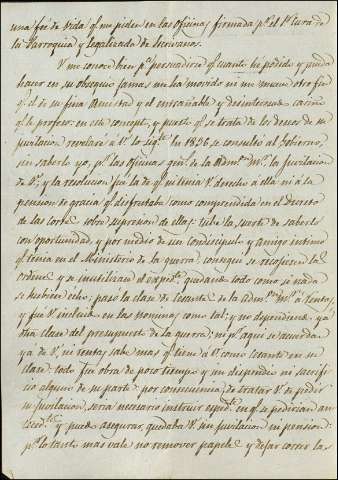 una fé de vida q.e me piden en las oficinas firmada p.r el S.r Cura de
la Parroquia y legalizada de Escrivanos.
V. me conoce bien p.a persuadirse q.e cuanto he podido y pueda
hacer en su obsequio jamas me ha movido ni me mueve otro fin
q.e el de su fina Amistad y el entrañable y desinteresado cariño
q.e le profeso: en este concepto, y puesto q.e se trata de los deseos de su
jubilacion revelaré à V. lo sig.te En 1836 se consultó al Gobierno,
sin saberlo yo, p.r las oficinas gen.s de la Adm.on M.r la jubilacion
de V., y la resolucion fué la de q.e ni tenia V. derecho a ella ni à la
pension de gracia q.e disfrutaba como comprendida en el decreto
de las Cortes sobre supresion de ellas: tube la suerte de saberlo
con oportunidad, y por medio de un condiscipulo y amigo intimo
q.e tenia en el Ministerio de la guerra consegui se recogiesen las
ordenes y se inutilizara el esped.te quedando todo como si nada
se hubiera echo: pasó la clase de Cesantes de la Adm.on M.r à Rentas,
y fué V. incluido en las nominas como tal; y no dependiendo ya
esta clase del presupuesto de la guerra; ni p.r aqui se acuerdan
ya de V. ni rentas sabe mas q.e tiene à V. como cesante en su
clase: todo fué obra de poco tiempo y sin dispendio ni sacrifi-
cio alguno de su parte: por consecuencia de tratar V. de pedir
su jubilacion, sería necesario instruir esped.te en q.e se pedirian an
teced.tes y puedo asegurar, quedaba V. sin jubilacion ni pension:
p.r lo tanto mas vale no remover papeles y dejar correr las